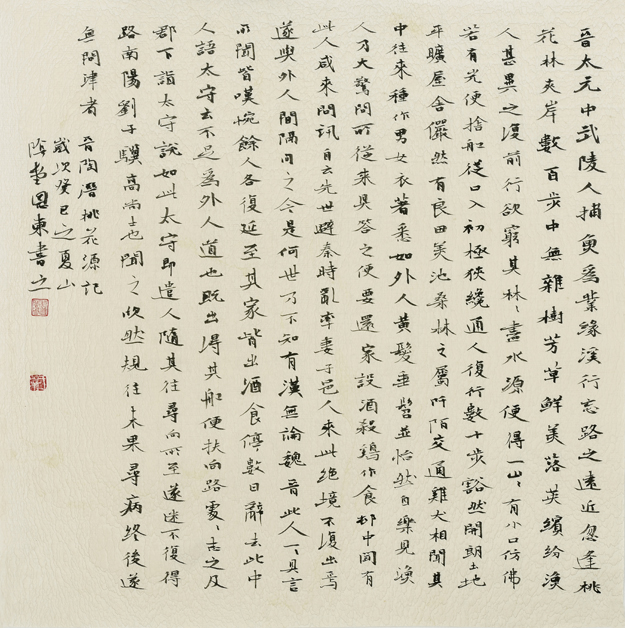 晋太元中武陵人捕魚為業緣溪行忘路之遠近忽逢桃
花林夾岸數百步中無雜樹芳草鮮美落英繽紛漁
人甚異之復前行欲窮其林〻盡水源便得一山〻有小口仿佛
若有光便捨船從口入初極狹纔通人復行數十步豁然開朗土地
平曠屋舍儼然有良田美池桑林之屬阡陌交通雞犬相聞其
中往來種作男女衣著悉如外人黃髮垂髫並怡然自樂見漁
人乃大驚問所從来具答之便要還家設酒殺鷄作食邨中聞有
此人咸来問訊自云先世避秦時亂率妻子邑人來此绝境不復出焉
遂與外人間隔問之今是何世乃不知有漢無論魏晉此人一一具言
所聞皆嘆惋餘人各復延至其家皆出酒食停數日辭去此中
人語太守云不足為外人道也既出得其船便扶向路處〻志之及
郡下詣太守說如此太守即遣人隨其往尋向所至遂迷不復得
路南陽劉子驥高尚士也聞之欣然規往未果尋病終後遂
無問津者 晉陶潛桃花源記
歲次癸巳之夏山
東書之